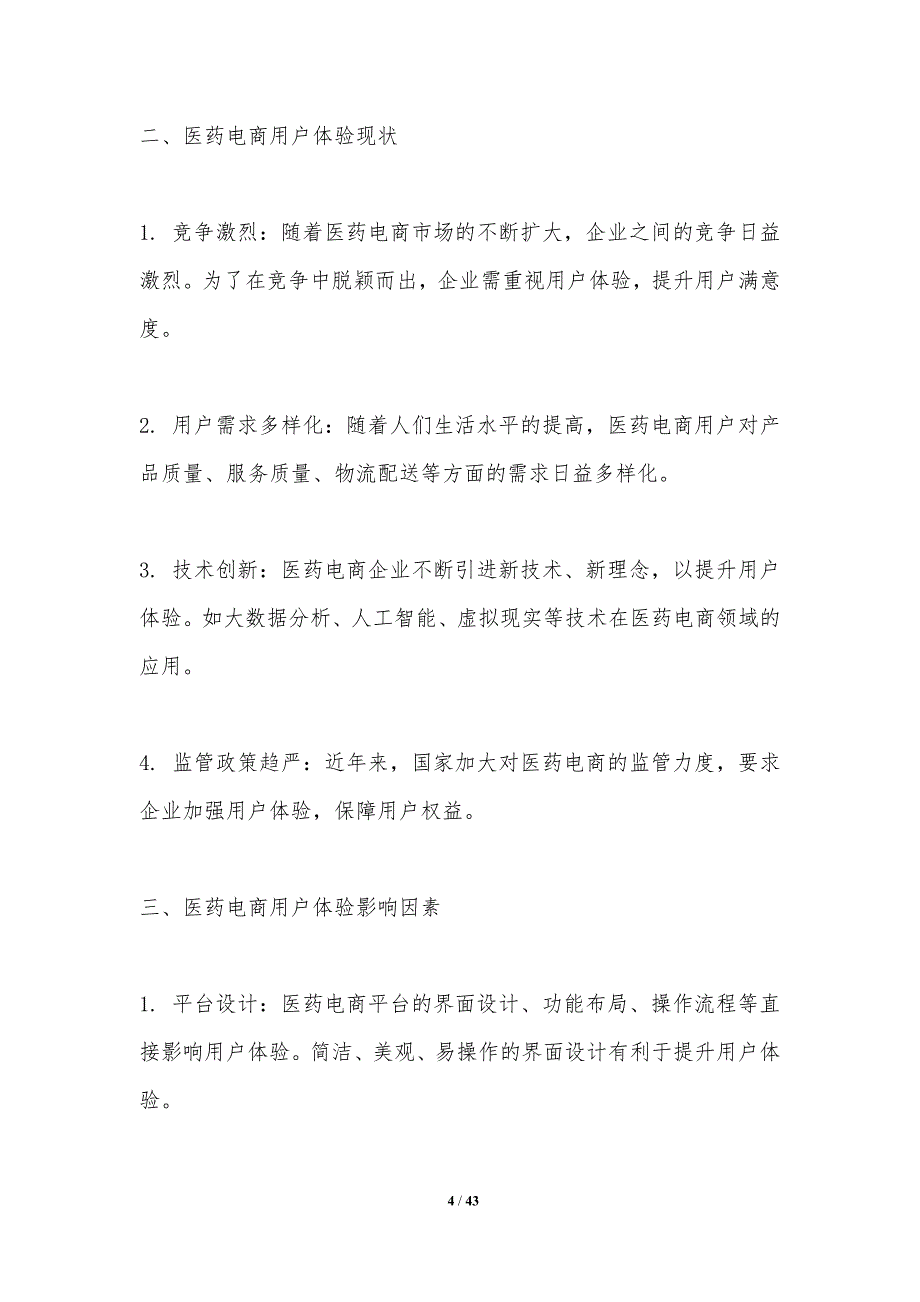 二、医药电商用户体验现状
1. 竞争激烈：随着医药电商市场的不断扩大，企业之间的竞争日益
激烈。为了在竞争中脱颖而出，企业需重视用户体验，提升用户满意
度。
2. 用户需求多样化：随着人们生活水平的提高，医药电商用户对产
品质量、服务质量、物流配送等方面的需求日益多样化。
3. 技术创新：医药电商企业不断引进新技术、新理念，以提升用户
体验。如大数据分析、人工智能、虚拟现实等技术在医药电商领域的
应用。
4. 监管政策趋严：近年来，国家加大对医药电商的监管力度，要求
企业加强用户体验，保障用户权益。
三、医药电商用户体验影响因素
1. 平台设计：医药电商平台的界面设计、功能布局、操作流程等直
接影响用户体验。简洁、美观、易操作的界面设计有利于提升用户体
验。
4 / 43